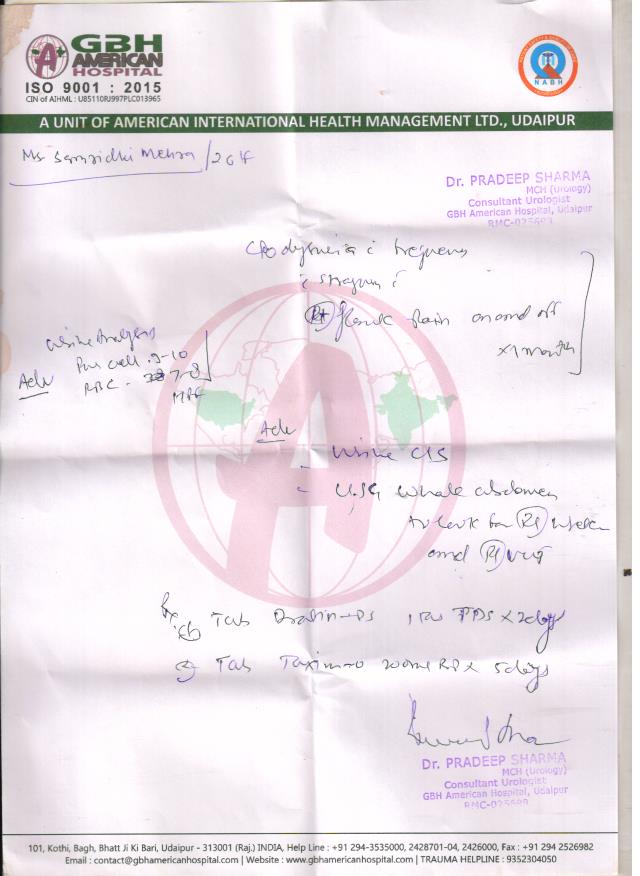 GBH
AMERICAN
HOSPITAL
ISO 9001 : 2015
CIN of AIHML : U85110RJ997PLC013965
NABH
A UNIT OF AMERICAN INTERNATIONAL HEALTH MANAGEMENT LTD., UDAIPUR
Ms Samridhi Mehra / 26 F
Dr. PRADEEP SHARMA
MCH (Urology)
Consultant Urologist
GBH American Hospital, Udaipur
C/o dysuria c frequency
c
Rt flank pain on and off
x1 month
Urine Analysis
Pus cell - 9-10
RBC - 7-8
HPF
Adv
Adv
- Urine C/S
- USG whole abdomen
to look for Rt
and Rt VUJ
Rx
Tab DS TDS x 2 days
Tab Taxim-O 200mg BD x 5 days
Dr. PRADEEP SHARMA
MCH (Urology)
Consultant Urologist
GBH American Hospital, Udaipur
101, Kothi, Bagh, Bhatt Ji Ki Bari, Udaipur - 313001 (Raj.) INDIA, Help Line : +91 294-3535000, 2428701-04, 2426000, Fax : +91 294 2526982
Email : contact@gbhamericanhospital.com | Website : www.gbhamericanhospital.com | TRAUMA HELPLINE : 9352304050